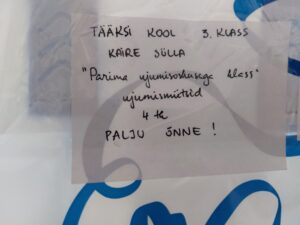 TÄÄKSI KOOL 3. KLASS
KAIRE SÜLLA
"Parima ujumisoskusega klass"
ujumismütsid
4 tk
PALJU ÕNNE !